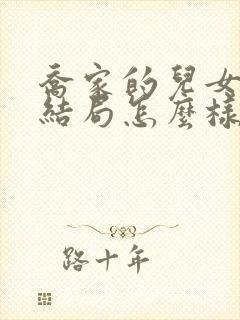 喬家的兒女
結局怎麼樣
路十年